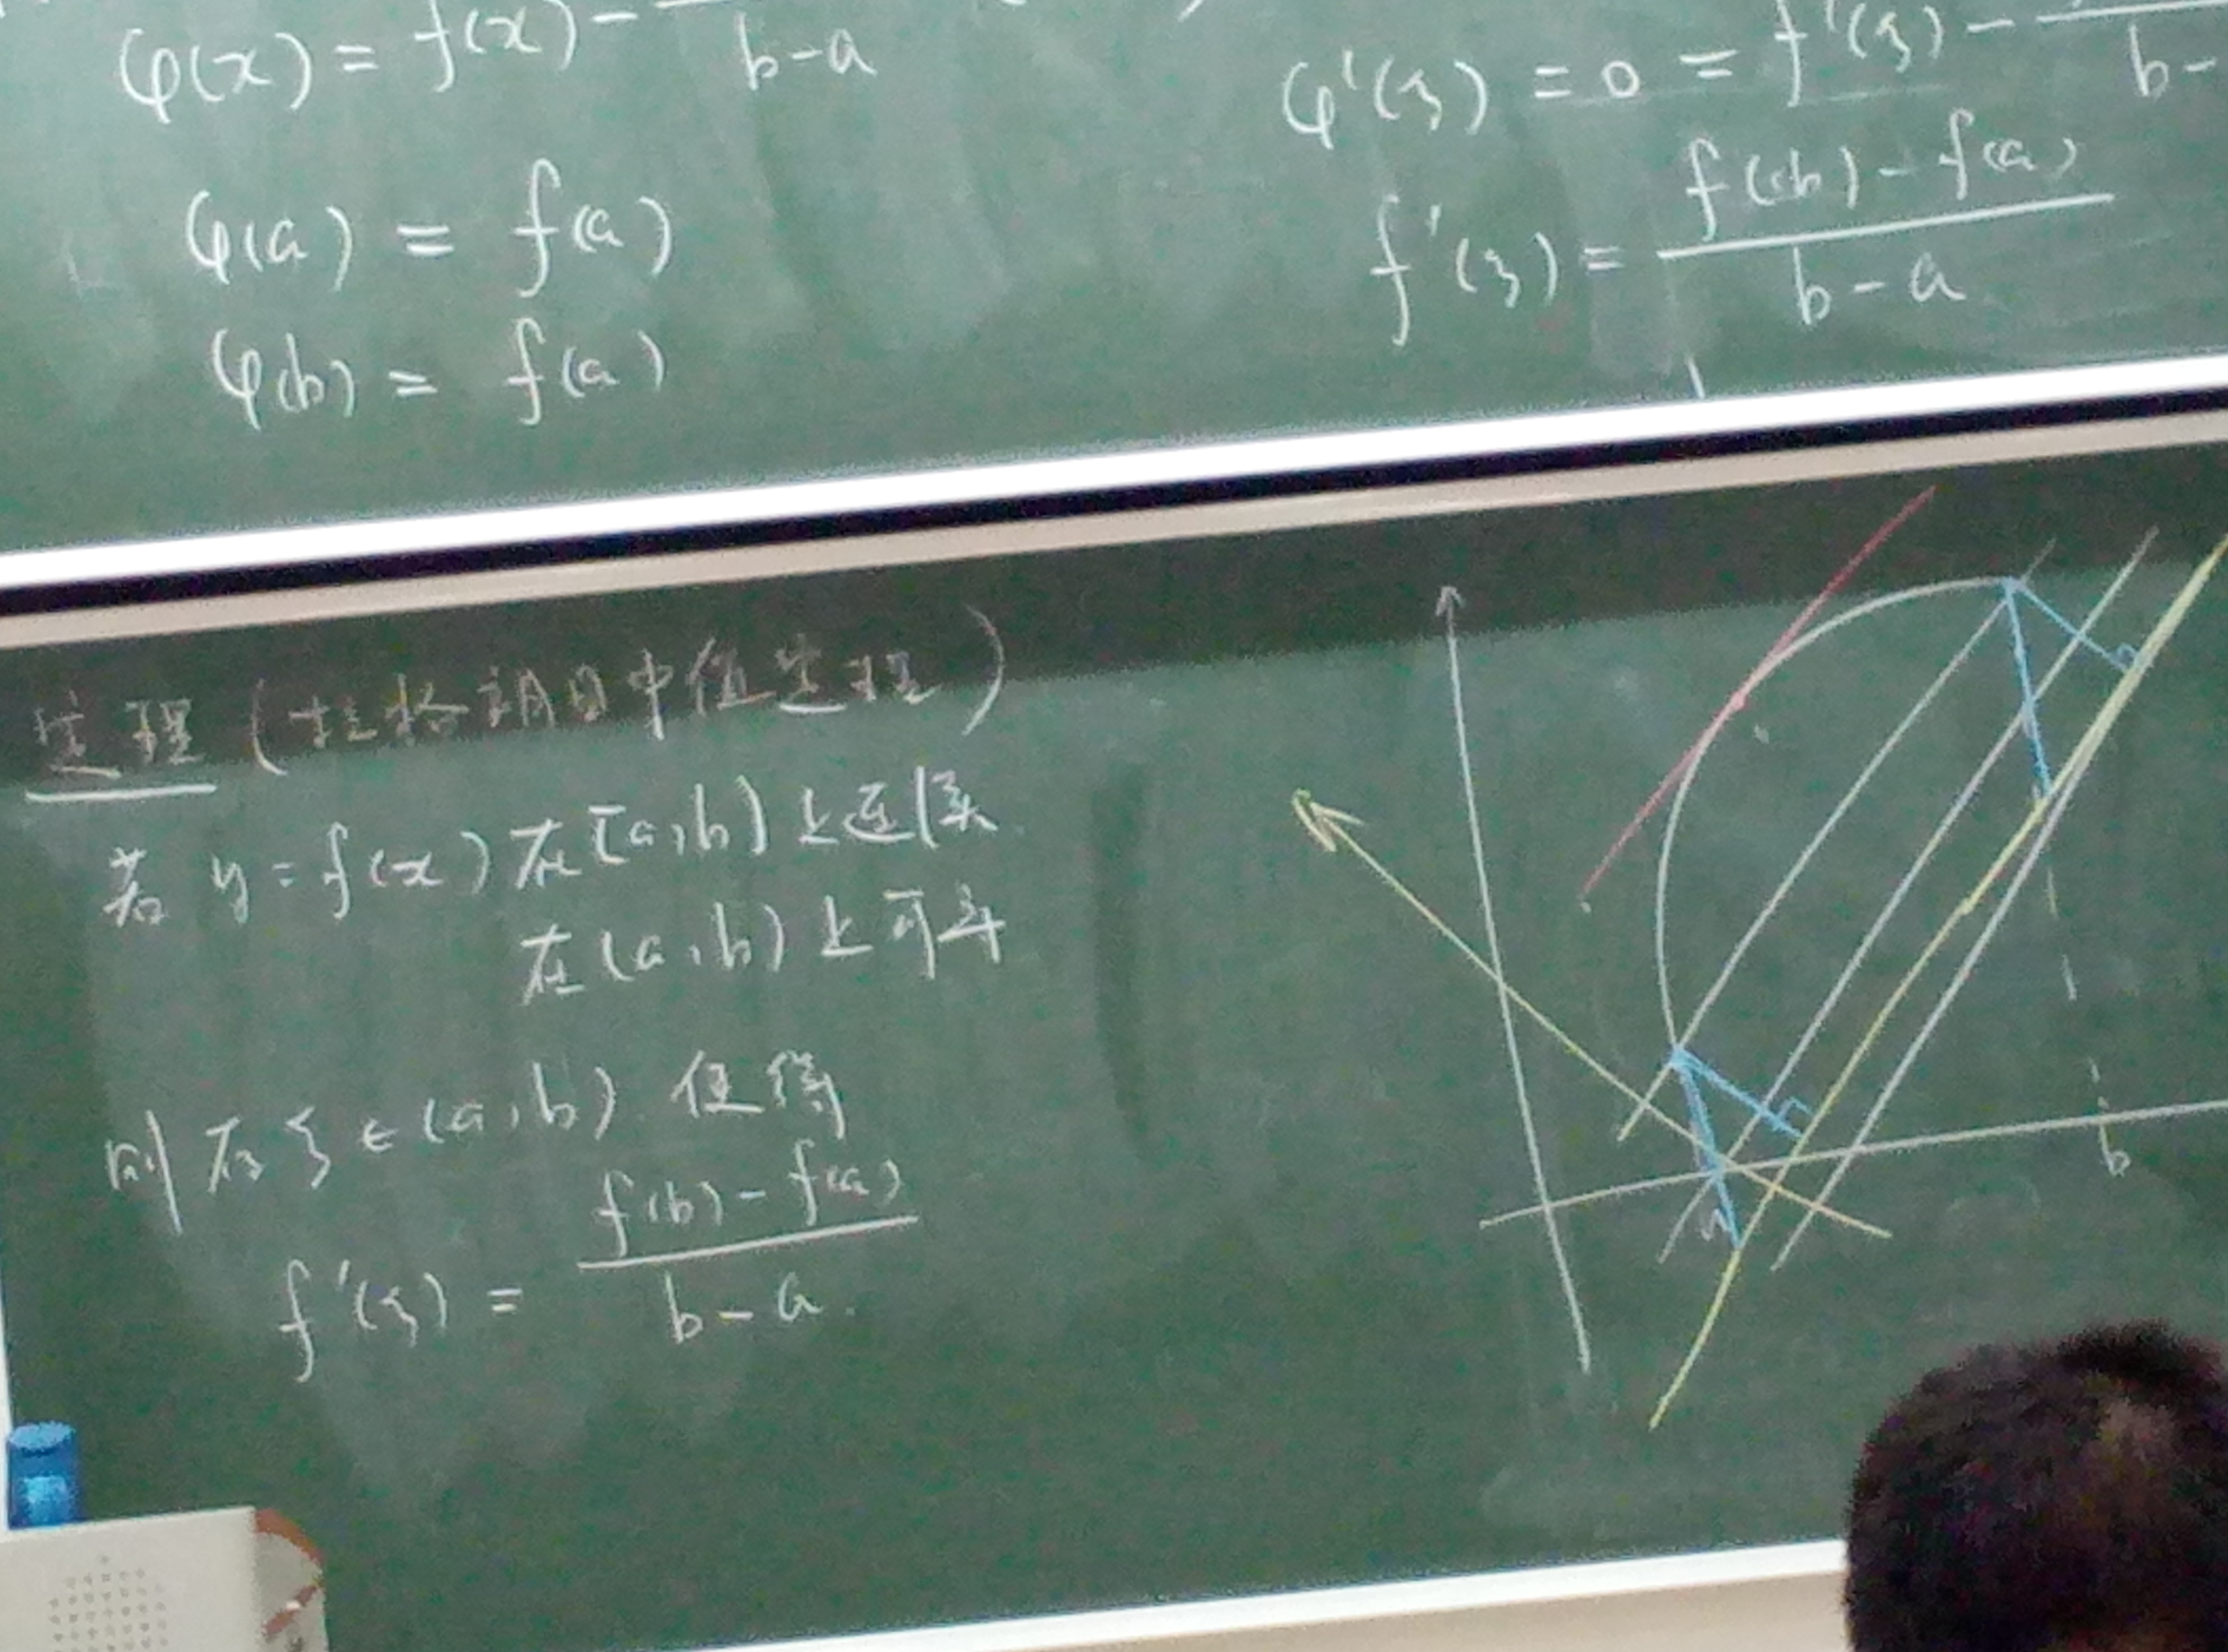 φ(x) = f(x) - ―― b-a
φ(a) = f(a)
φ(b) = f(a)
φ'(ξ) = 0 = f'(ξ) - ―― b-
f'(ξ) = \frac{f(b)-f(a)}{b-a}
定理 (拉格朗日中值定理)
若 y=f(x) 在[a,b]上连续
在(a,b)上可导
则存ξ∈(a,b) 使得
f'(ξ) = \frac{f(b)-f(a)}{b-a}.
a
b